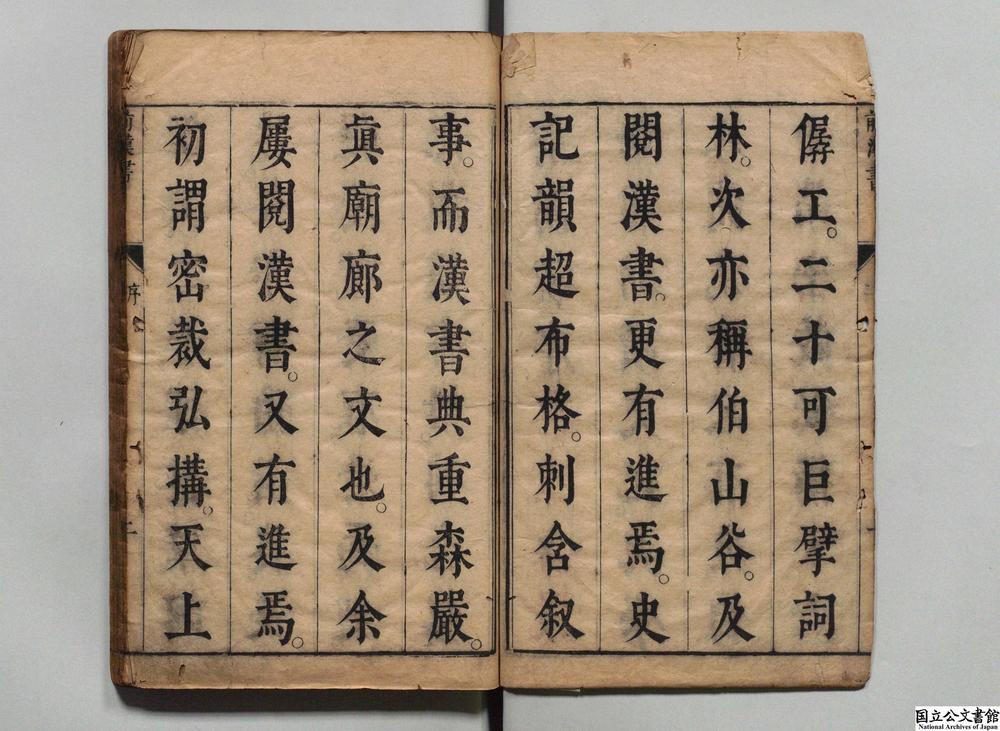 僝工。二十可巨擘詞
林。次亦稱伯山谷。及
閱漢書。更有進焉。史
記韻超布格。刺含叙
事。而漢書典重森嚴。
眞廟廊之文也。及余
屢閱漢書。又有進焉。
初謂密裁弘搆。天上
前漢書
序
国立公文書館
National Archives of Japan